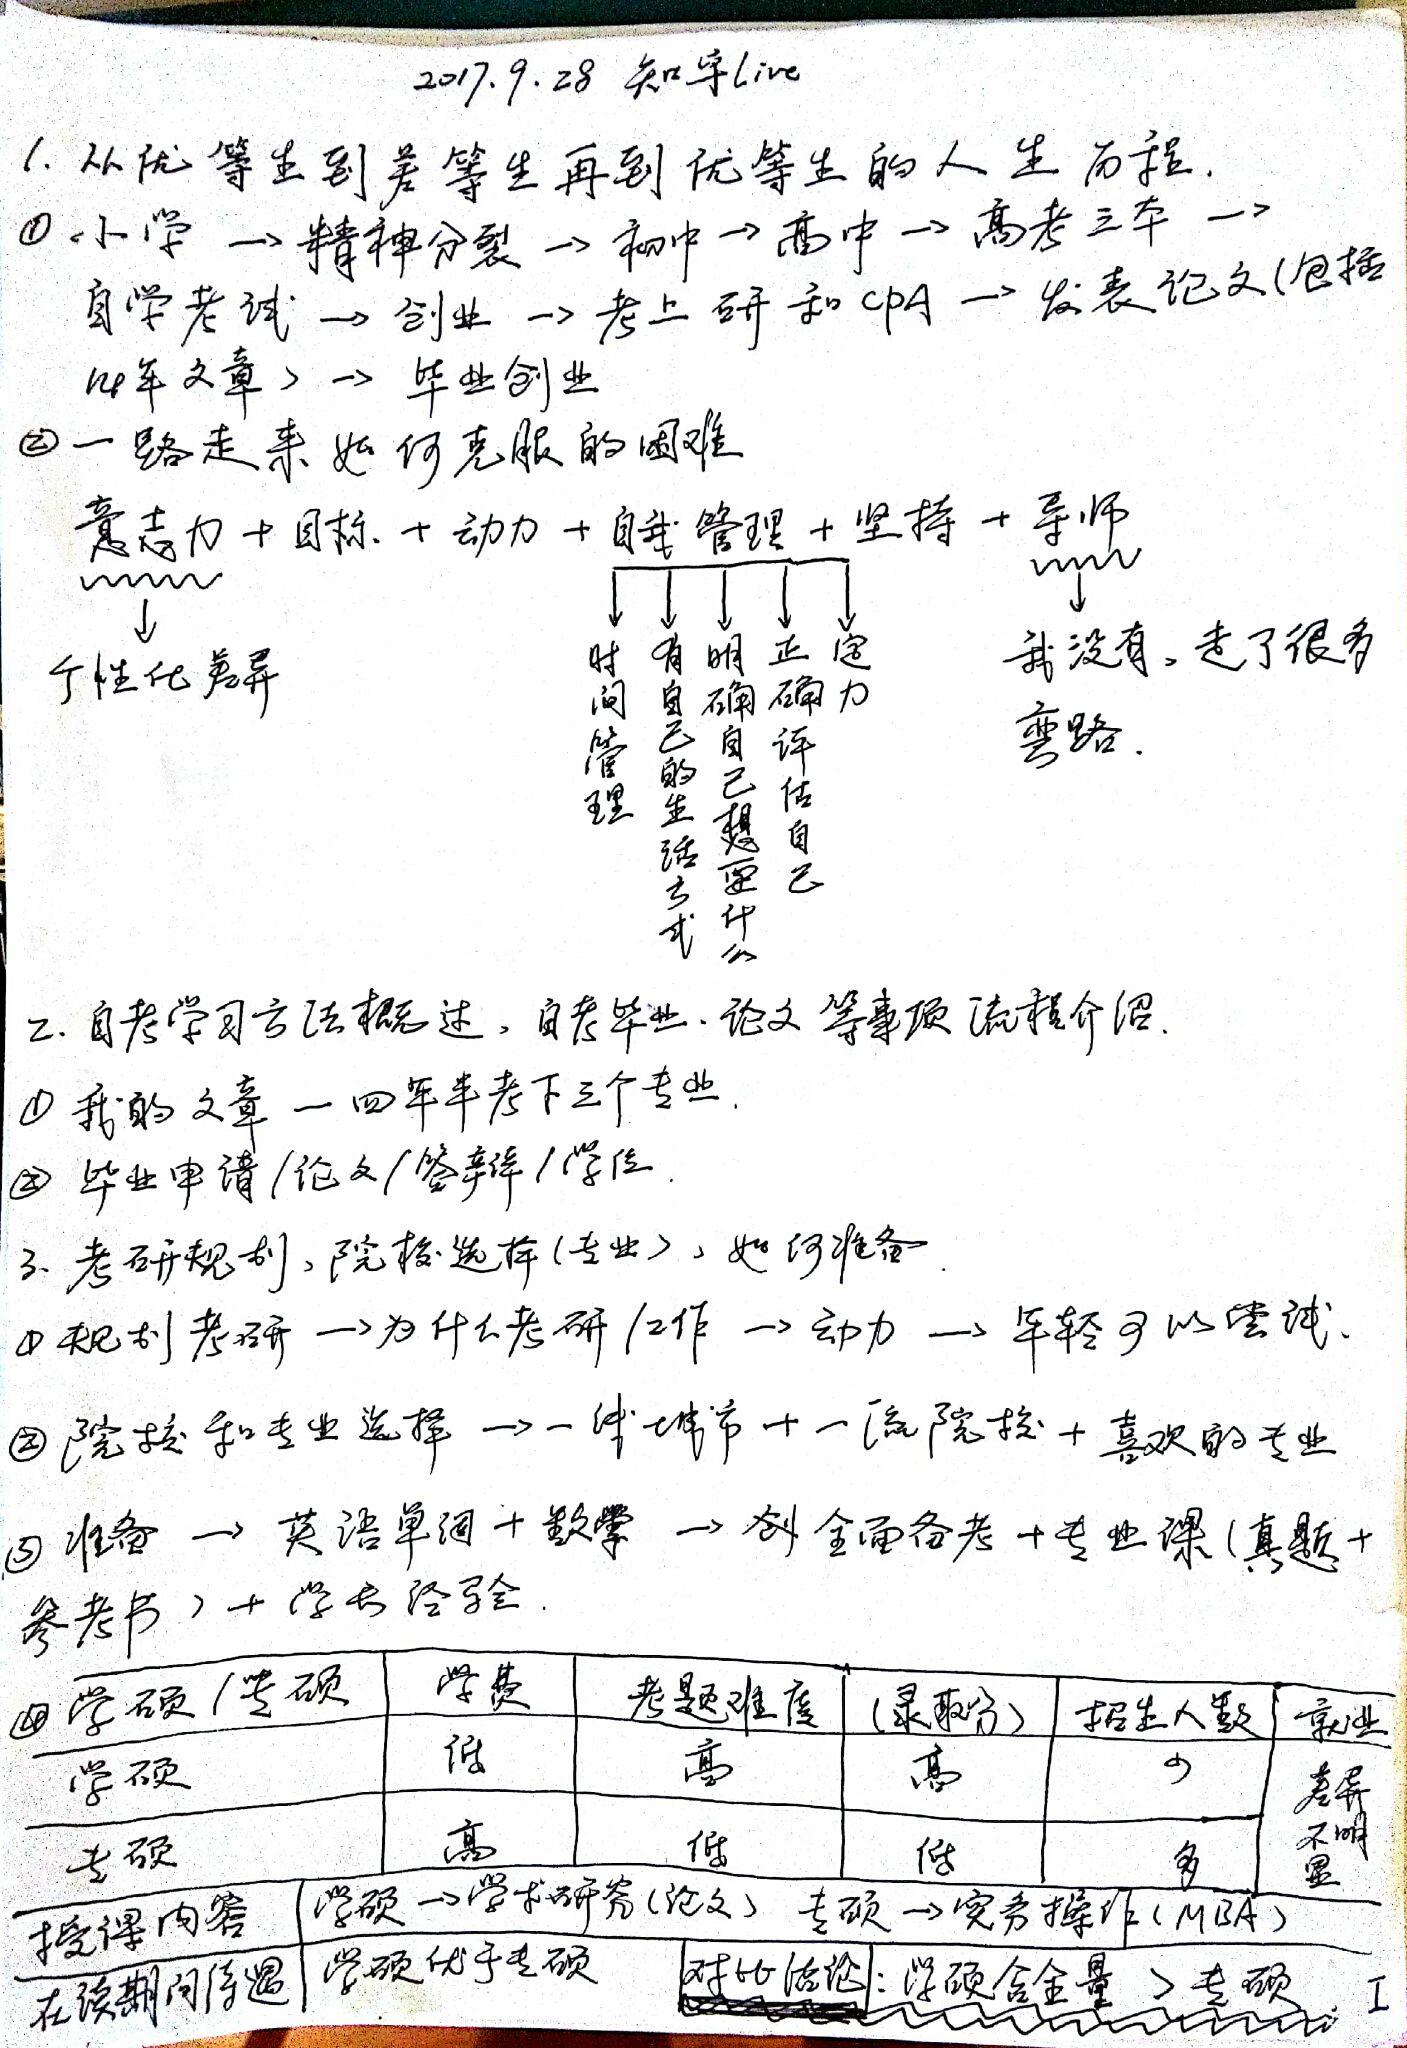 2017.9.28 知乎Live
1. 从优等生到差等生再到优等生的人生历程.
① 小学 → 精神分裂 → 初中 → 高中 → 高考三本 →
自学考试 → 创业 → 考上研和CPA → 发表论文(包括
14年文章) → 毕业创业
② 一路走来如何克服的困难
意志力 + 目标 + 动力 + 自我管理 + 坚持 + 导师
个性化差异
时间管理
有自己的生活方式
明确自己想要什么
正确评估自己
定力
我没有,走了很多
弯路.
2. 自考学习方法概述,自考毕业、论文等事项流程介绍.
① 我的文章一四年半考下三个专业.
② 毕业申请/论文/答辩/学位.
3. 考研规划,院校选择(专业),如何准备.
① 规划考研 → 为什么考研/工作 → 动力 → 年轻可以尝试.
② 院校和专业选择 → 一线城市 + 一流院校 + 喜欢的专业
③ 准备 → 英语单词 + 数学 → 全面备考 + 专业课(真题+
参考书) + 学长经验.
④ 学硕/专硕 学费 考题难度 (录取分) 招生人数 就业
学硕 低 高 高 少 差异不明显
专硕 高 低 低 多
授课内容 学硕 → 学术研究(论文) 专硕 → 实务操作(MBA)
在读期间待遇 学硕优于专硕 对比结论: 学硕含金量 > 专硕 I